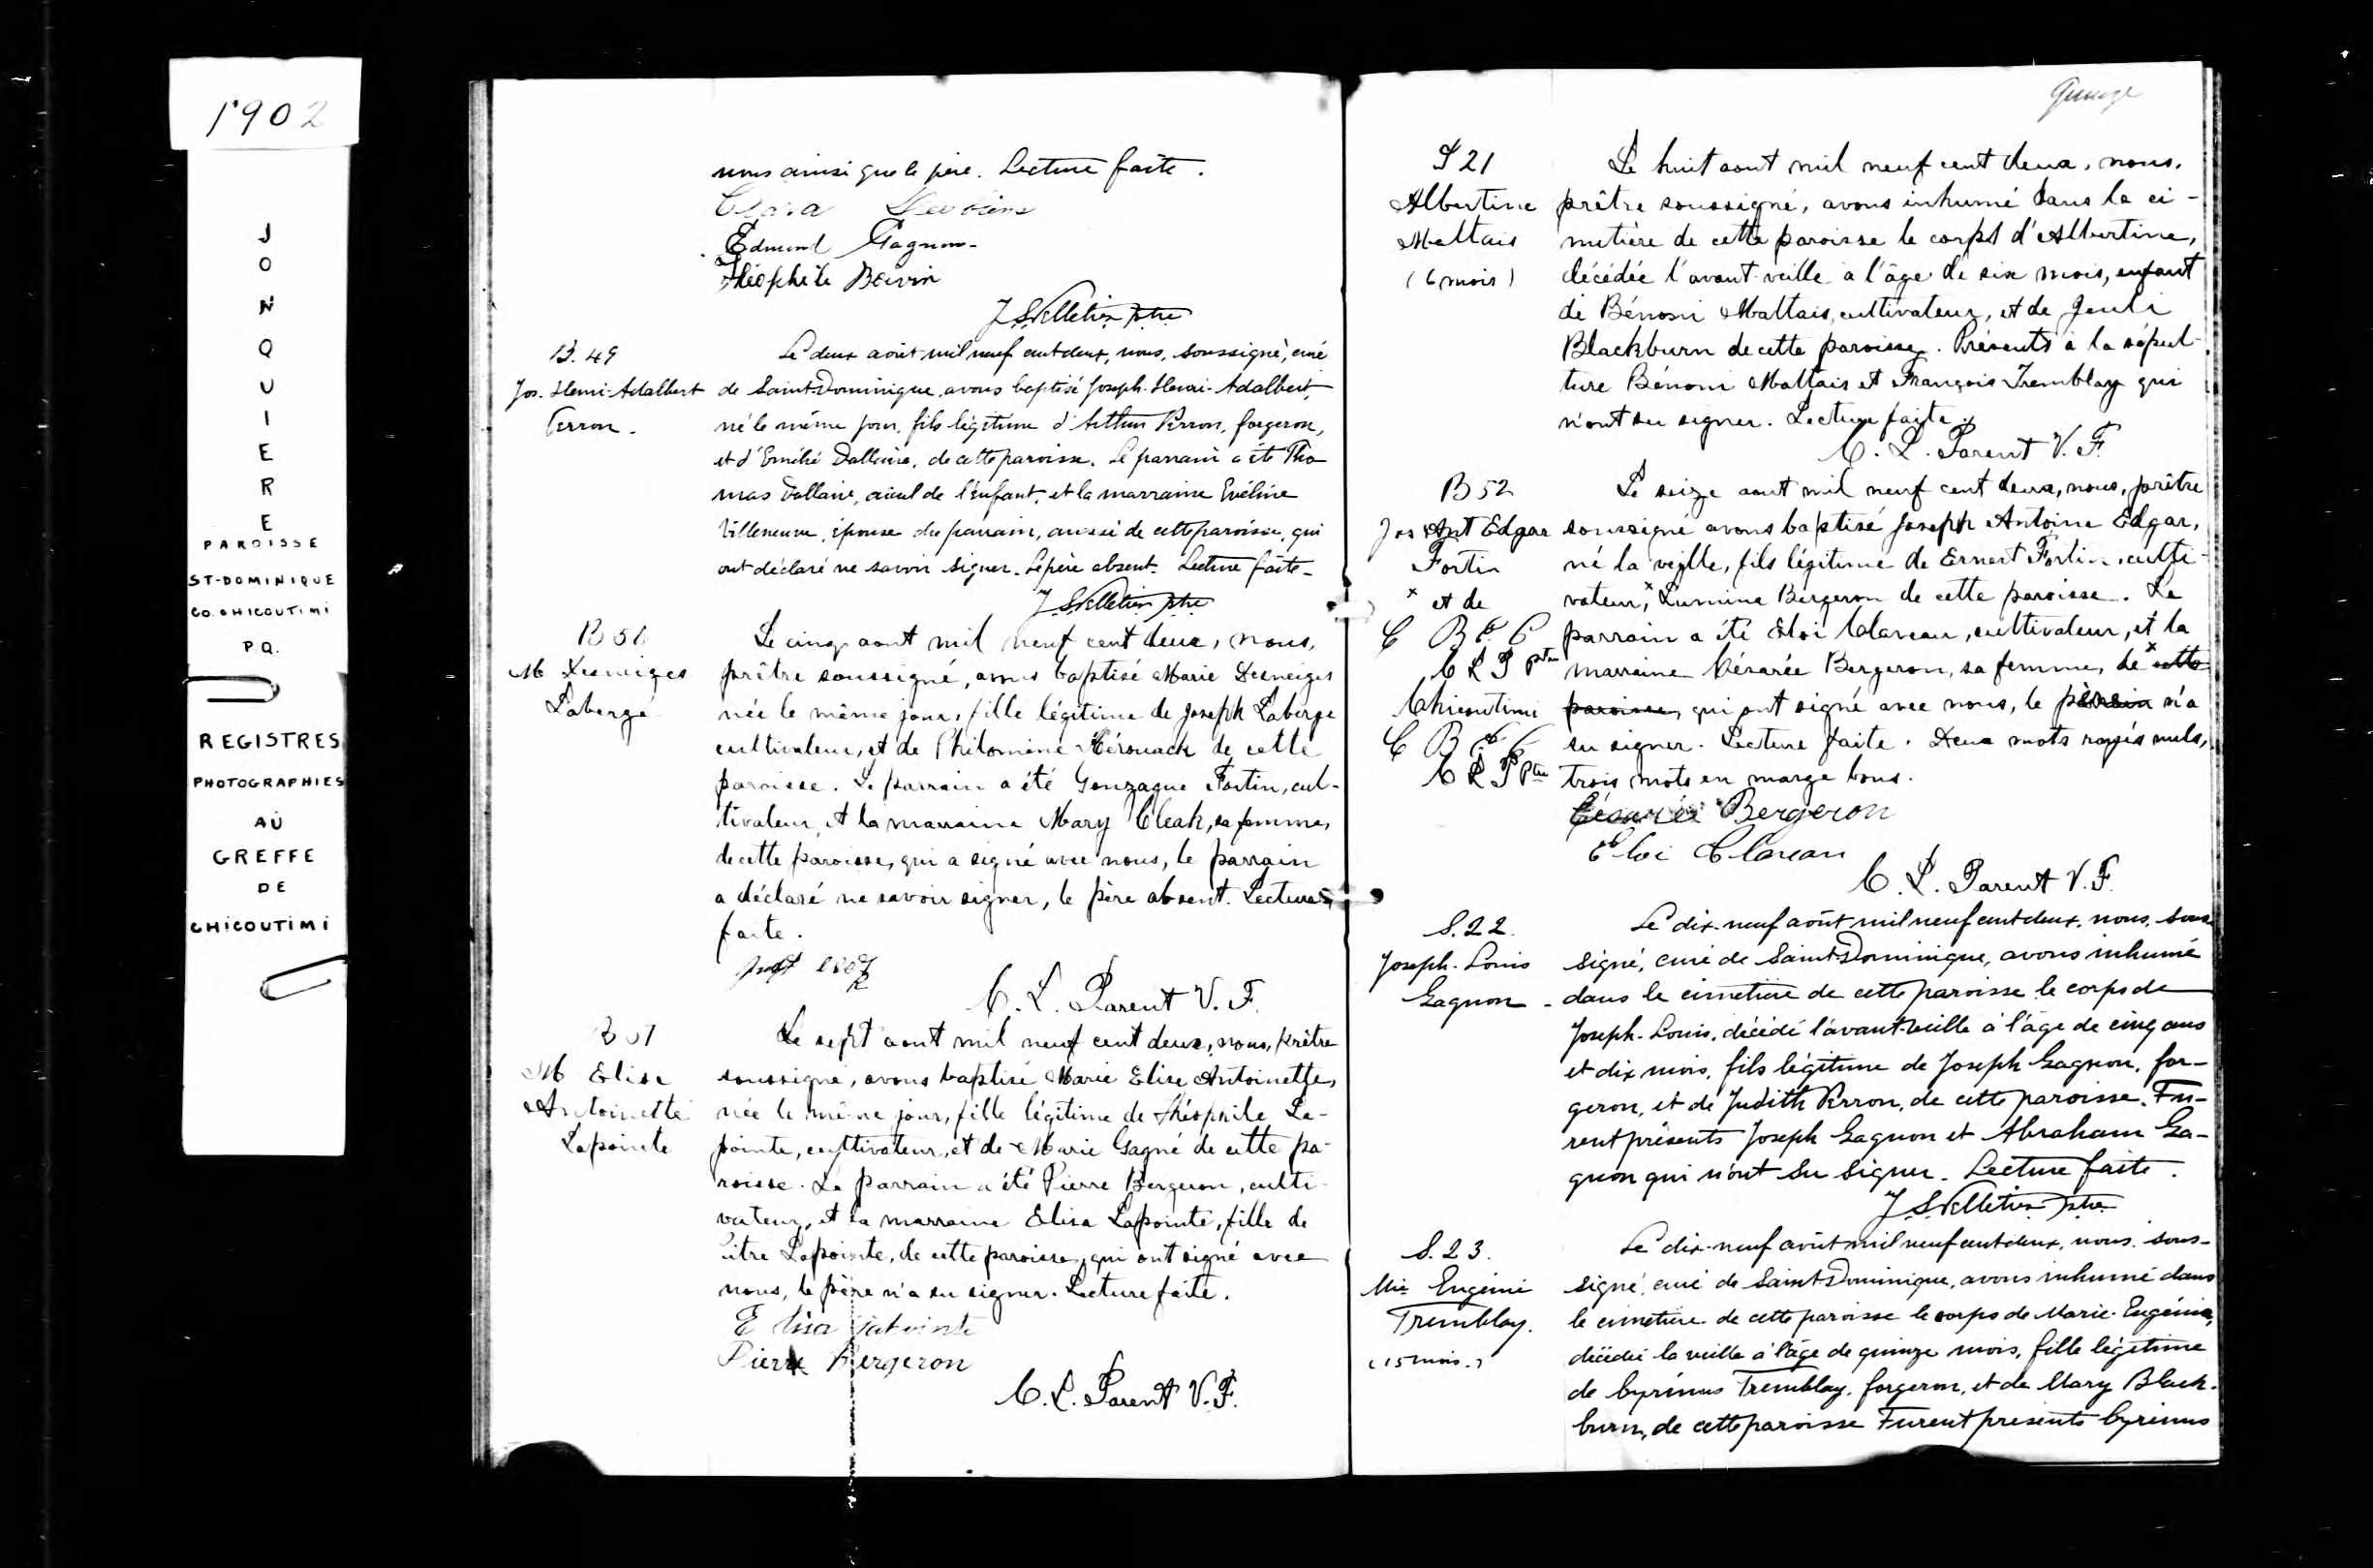 1902
JONQUIERE
PAROISSE
ST-DOMINIQUE
CO. CHICOUTIMI
P.Q.
REGISTRES
PHOTOGRAPHIES
AU
GREFFE
DE
CHICOUTIMI
nous ainsi que le père. Lecture faite.
Edmond Gagnon
Théophile Boivin
J S Pelletier ptre
B. 49
Jos. Henri-Adalbert
Perron.
Le deux août mil neuf cent deux, nous, soussigné, curé
de Saint-Dominique, avons baptisé Joseph-Henri-Adalbert,
né le même jour, fils légitime d'Arthur Perron, forgeron,
et d'Emélie Dallaire, de cette paroisse. Le parrain a été Tho-
mas Dallaire, aieul de l'enfant, et la marraine Evéline
Villeneuve, épouse du parrain, aussi de cette paroisse, qui
ont déclaré ne savoir signer. Le père absent. Lecture faite.
J S Pelletier ptre
B 50
M Desneiges
Laberge
Le cinq aout mil neuf cent deux, nous,
prêtre soussigné, avons baptisé Marie Desneiges
née le même jour, fille légitime de Joseph Laberge
cultivateur, et de Philomène Kérouack de cette
paroisse. Le parrain a été Gonzague Fortin, cul-
tivateur, et la marraine Mary Cleak, sa femme,
de cette paroisse, qui a signé avec nous, le parrain
a déclaré ne savoir signer, le père absent. Lecture
faite.
C. L. Parent V. F.
B 51
M Elise
Antoinette
Lapointe
Le sept aout mil neuf cent deux, nous, prêtre
soussigné, avons baptisé Marie Elise Antoinette,
née le même jour, fille légitime de Théophile La-
pointe, cultivateur, et de Marie Gagné de cette pa-
roisse. Le parrain a été Pierre Bergeron, culti-
vateur, et la marraine Elisa Lapointe, fille de
Lapointe, de cette paroisse, qui ont signé avec
nous, le père n'a su signer. Lecture faite.
Elisa Lapointe
Pierre Bergeron
C. L. Parent V. F.
S 21
Albertine
Maltais
(6 mois)
Le huit aout mil neuf cent deux, nous,
prêtre soussigné, avons inhumé dans le ci-
metière de cette paroisse le corps d'Albertine,
décédée l'avant-veille à l'âge de six mois, enfant
de Bénoni Maltais, cultivateur, et de
Blackburn de cette paroisse. Présents à la sépul-
ture Bénoni Maltais et François Tremblay qui
n'ont su signer. Lecture faite.
C. L. Parent V. F.
B 52
Jos Ant Edgar
Fortin
x et de
C B E C
C L P ptre
Chicoutimi
C B E C
C L P ptre
Le seize aout mil neuf cent deux, nous, prêtre
soussigné avons baptisé Joseph Antoine Edgar,
né la veille, fils légitime de Ernest Fortin, culti-
vateur, x Lumina Bergeron de cette paroisse. Le
parrain a été Eloi Claveau, cultivateur, et la
marraine Césarée Bergeron, sa femme, de x cette
paroisse, qui ont signé avec nous, le père n'a
su signer. Lecture faite. Deux mots rayés nuls,
trois mots en marge bons.
Césarée Bergeron
Eloi Claveau
C. L. Parent V. F.
S. 22.
Joseph-Louis
Gagnon
Le dix-neuf août mil neuf cent deux, nous, sous-
signé, curé de Saint-Dominique, avons inhumé
dans le cimetière de cette paroisse le corps de
Joseph-Louis, décédé l'avant-veille à l'âge de cinq ans
et dix mois, fils légitime de Joseph Gagnon, for-
geron, et de Judith Perron, de cette paroisse. Fu-
rent présents Joseph Gagnon et Abraham Ga-
gnon qui n'ont su signer. Lecture faite.
J S Pelletier ptre
S. 23.
Mie Eugénie
Tremblay.
(15 mois.)
Le dix-neuf août mil neuf cent deux, nous sous-
signé, curé de Saint-Dominique, avons inhumé dans
le cimetière de cette paroisse le corps de Marie-Eugénie,
décédée la veille à l'âge de quinze mois, fille légitime
de Cyrinus Tremblay, forgeron, et de Mary Black-
burn, de cette paroisse Furent présents Cyrinus